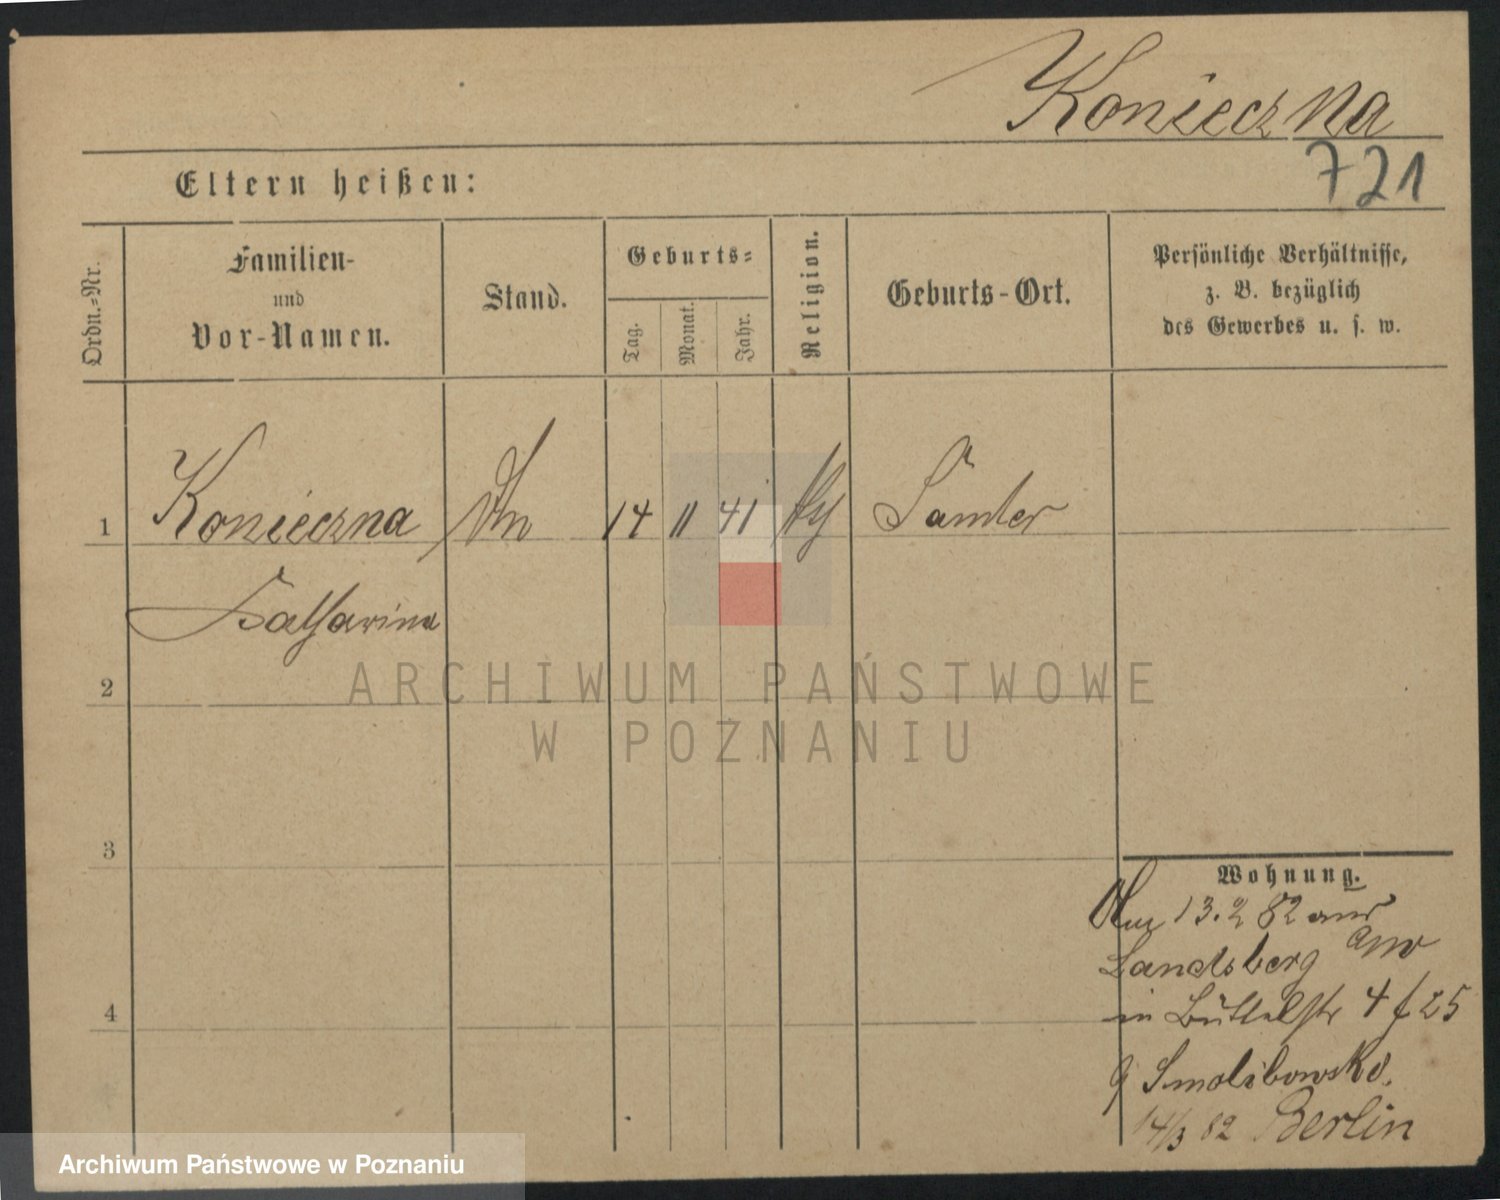 Konieczna
Eltern heißen:
721
Ordn.-Nr.
Familien-
und
Vor-Namen.
Stand.
Geburts-
Tag.
Monat.
Jahr.
Religion.
Geburts-Ort.
Persönliche Verhältnisse,
z. B. bezüglich
des Gewerbes u. s. w.
1
Konieczna
14
11
41
Samter
Katharina
2
ARCHIWUM PAŃSTWOWE
W POZNANIU
3
Wohnung.
13. 2 82 aus
Landsberg
4
in Büttelstr 4 f 25
Smolibowski.
14/3 82 Berlin
Archiwum Państwowe w Poznaniu